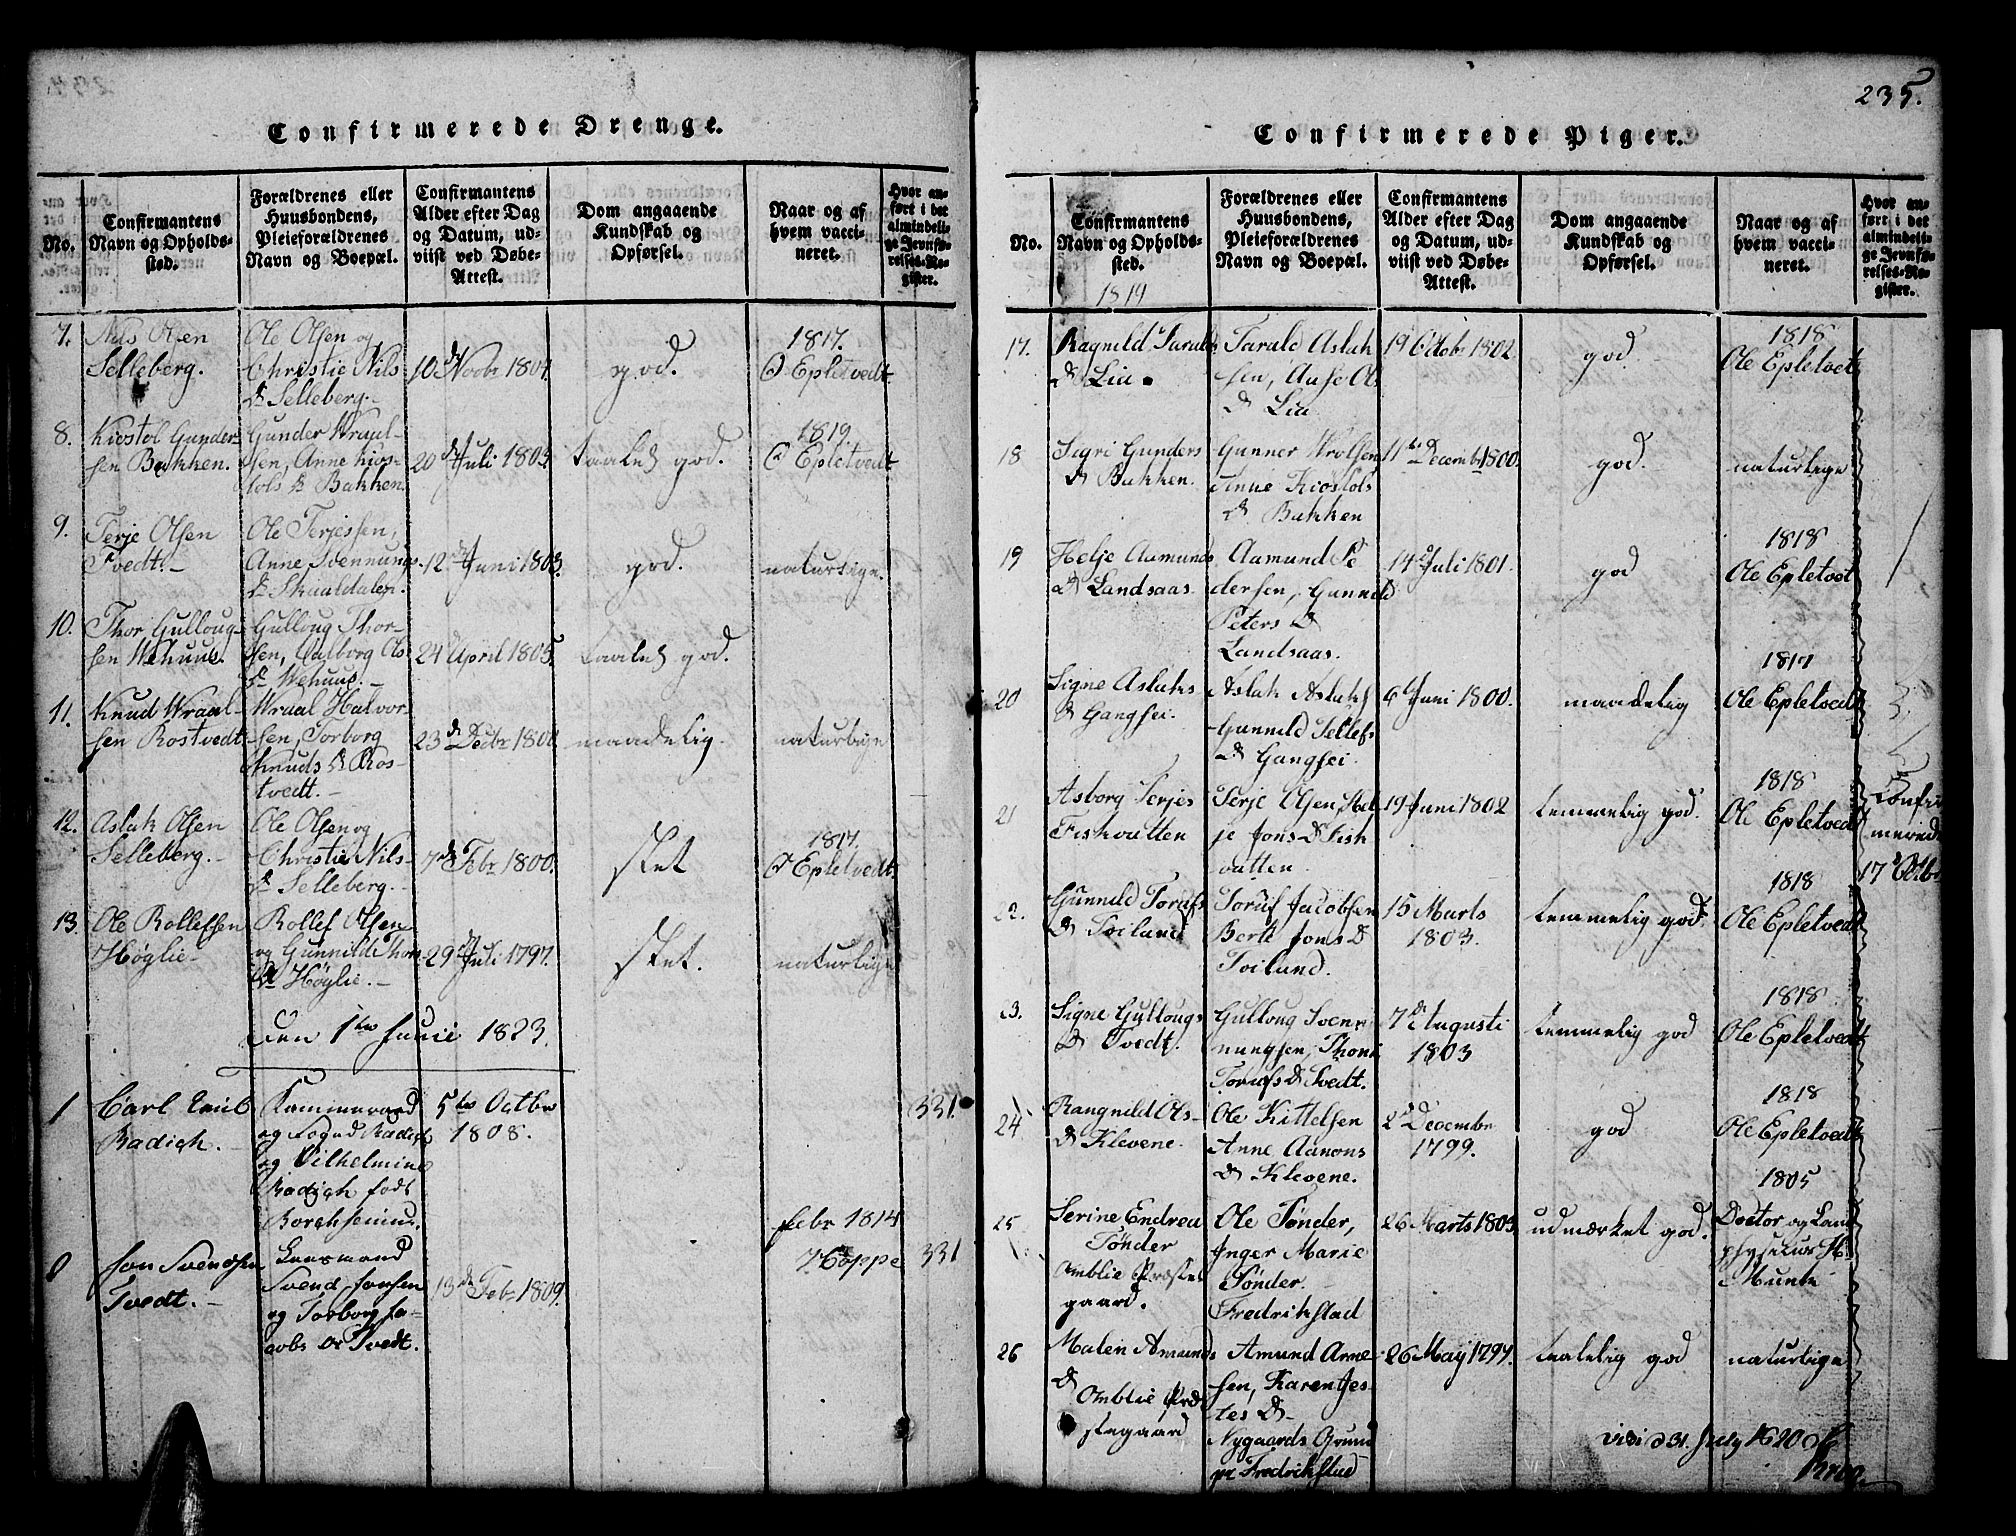 235.
Confirmerede Drenge.
No.
Confirmantens
Navn og Opholds-
sted.
Forældrenes eller
Huusbondens,
Pleieforældrenes
Navn og Boepæl.
Confirmantens
Alder efter Dag
og Datum, ud-
viist ved Døbe-
Attest.
Dom angaaende
Kundskab og
Opførsel.
Naar og af
hvem vacci-
neret.
Hvor an-
ført i det
almindeli-
ge Jevnfø-
relses-Re-
gister.
7.
Nils Olsen
Selleberg.
Ole Olsen og
Christie Nils
D Selleberg.
10 d Novbr 1801.
god.
1817.
O Epletvedt
8.
Kiostol Gunder-
sen Bakken.
Gunder Wraal-
sen, Anne Kios-
tols D Bakken
20 d Juli 1803.
taaleli god.
1819.
O Epletvedt
9.
Terje Olsen
Tvedt.
Ole Terjessen,
Anne Svennungs
D Skaaldalen.
12 d Juni 1803.
god.
naturlige.
10.
Thor Gulloug-
sen Wehuus.
Gulloug Thor-
sen, Aalborg Os
D Wehuus.
24 d April 1805.
taaleli god.
11.
Knud Wraal-
sen Rostvedt
Wraal Halvor-
sen, Torborg
Knuds D Ros-
tvedt.
23 d Decbr 1800
maadelig.
naturlige
12.
Aslak Olsen
Selleberg.
Ole Olsen og
Christie Nils-
D Selleberg.
7 d Febr 1800.
slet
1817.
O Epletvedt.
13.
Ole Rollefsen
Höglie
Rollef Olsen
og Gunnilde Thor
D Höglie.
29 d Juli 1797.
slet.
naturlige
den 1te Junii 1823.
1
Carl Emil
Radich.
Kammeraad
og Foged Radich
og Vilhelmine
Radich født
Borchsenius.
5te Octbr
1808.
331.
Jon Svendsen
Tvedt.
Lensmand
Svend Jonsen
og Torborg Ja-
cobs Dr Tvedt.
13 d Febr 1809.
Febr 1814
Höppe
331
Confirmerede Piger.
No.
Confirmantens
Navn og Opholds-
sted.
1819
Forældrenes eller
Huusbondens,
Pleieforældrenes
Navn og Boepæl.
Confirmantens
Alder efter Dag
og Datum, ud-
viist ved Døbe-
Attest.
Dom angaaende
Kundskab og
Opførsel.
Naar og af
hvem vacci-
neret.
Hvor an-
ført i det
almindeli-
ge Jevnfø-
relses-Re-
gister.
17.
Ragnild Taralds
D Lia
Tarald Aslak
sen, Aase Ols
D Lia
19 Octobr 1802
god.
1818
Ole Epletvet
18
Sigri Gunders
D Bakken.
Gunner Wrolsen
Anne Kiostols
D Bakken
11te Decembr 1800.
god.
naturlige
19
Helje Aamunds
D Landsaas
Aamund Pe
dersen, Gunnild
Peters D
Landsaas.
14 d Juli 1801.
god
1818
Ole Epletvet
20
Signe Aslaks
D Gangsei.
Aslak Aslaks
Gunnild Tellefs
D Gangsei.
6 d Juni 1800.
maadelig
1817
Ole Epletvedt
21
Asborg Terjes
Fiskvatten
Terje Olsen, Hel
je Jons D Fisk
vatten
19 Juni 1802
temmelig god.
1818
Ole Epletvedt
Confir
merede
17 d Octbr
22.
Gunnild Torufs
D Toiland
Toruf Jacobsen
Berte Jons D
Toiland.
15 Marts
1803.
temmelig god
1818
Ole Epletvedt
23.
Signe Gullougs
D Tvedt.
Gulloug Sven
nungsen, Thone
Torufs D Tvedt.
7 d Augusti
1803
temmelig god
1818.
Ole Epletvedt
24
Rangnild Ols-
D Klevene.
Ole Kittelsen
Anne Aanons
D Klevene.
2 d Decembr
1799.
god
1818
Ole Epletvedt
25
Serine Endrea
Tönder
Omblie Præste
gaard.
Ole Tönder,
Inger Marie
Tönder
Fredrikstad
26 Marts 1803.
udmærket god.
1805
Doctor og Land
physicus H.
Munk
26
Malen Amunds
D
Omblie Præ
stegaard
Amund Arne
sen, Karen Jes-
tes D
Nygaards Grund
pr Fredrikstad
26 May 1797.
taalelig god
naturlige
vidi d 31. July 1820